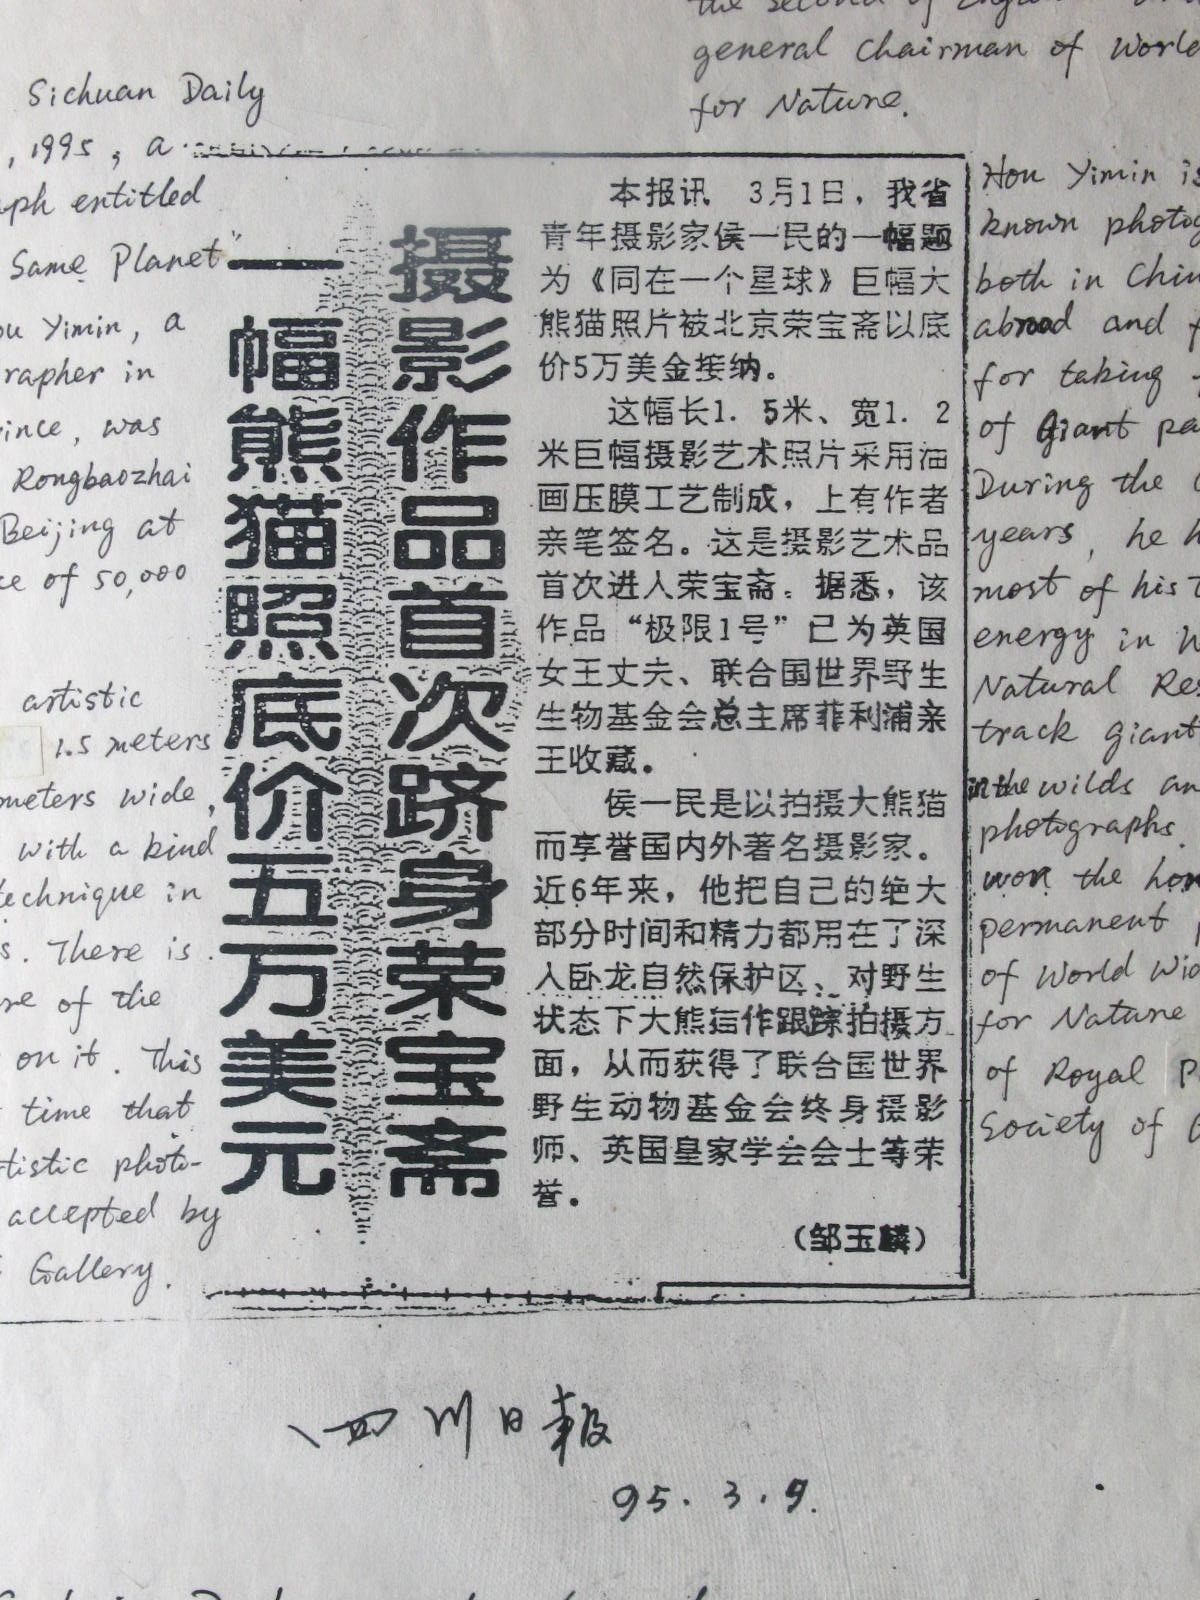 the second of
general Chairman of World
for Nature.
Sichuan Daily
, 1995, a
entitled
Same Planet"
Yimin, a
in
was
Rongbaozhai
Beijing at
of 50,000
artistic
1.5 meters
wide,
with a kind
technique in
There is
of the
on it. This
time that
photo-
accepted by
Gallery.
摄影作品首次跻身荣宝斋
一幅熊猫照底价五万美元
本报讯 3月1日，我省
青年摄影家侯一民的一幅题
为《同在一个星球》巨幅大
熊猫照片被北京荣宝斋以底
价5万美金接纳。
这幅长1.5米、宽1.2
米巨幅摄影艺术照片采用油
画压膜工艺制成，上有作者
亲笔签名。这是摄影艺术品
首次进入荣宝斋。据悉，该
作品“极限1号”已为英国
女王丈夫、联合国世界野生
生物基金会总主席菲利浦亲
王收藏。
侯一民是以拍摄大熊猫
而享誉国内外著名摄影家。
近6年来，他把自己的绝大
部分时间和精力都用在了深
入卧龙自然保护区、对野生
状态下大熊猫作跟踪拍摄方
面，从而获得了联合国世界
野生动物基金会终身摄影
师、英国皇家学会会士等荣
誉。
（邹玉麟）
Hou Yimin is
known
both in
abroad and
for taking
of Giant
During the
years, he
most of his
energy in
Natural
track giant
in the wilds
photographs.
won the
permanent
of World
for Nature
of Royal
Society of
四川日報
95.3.9.